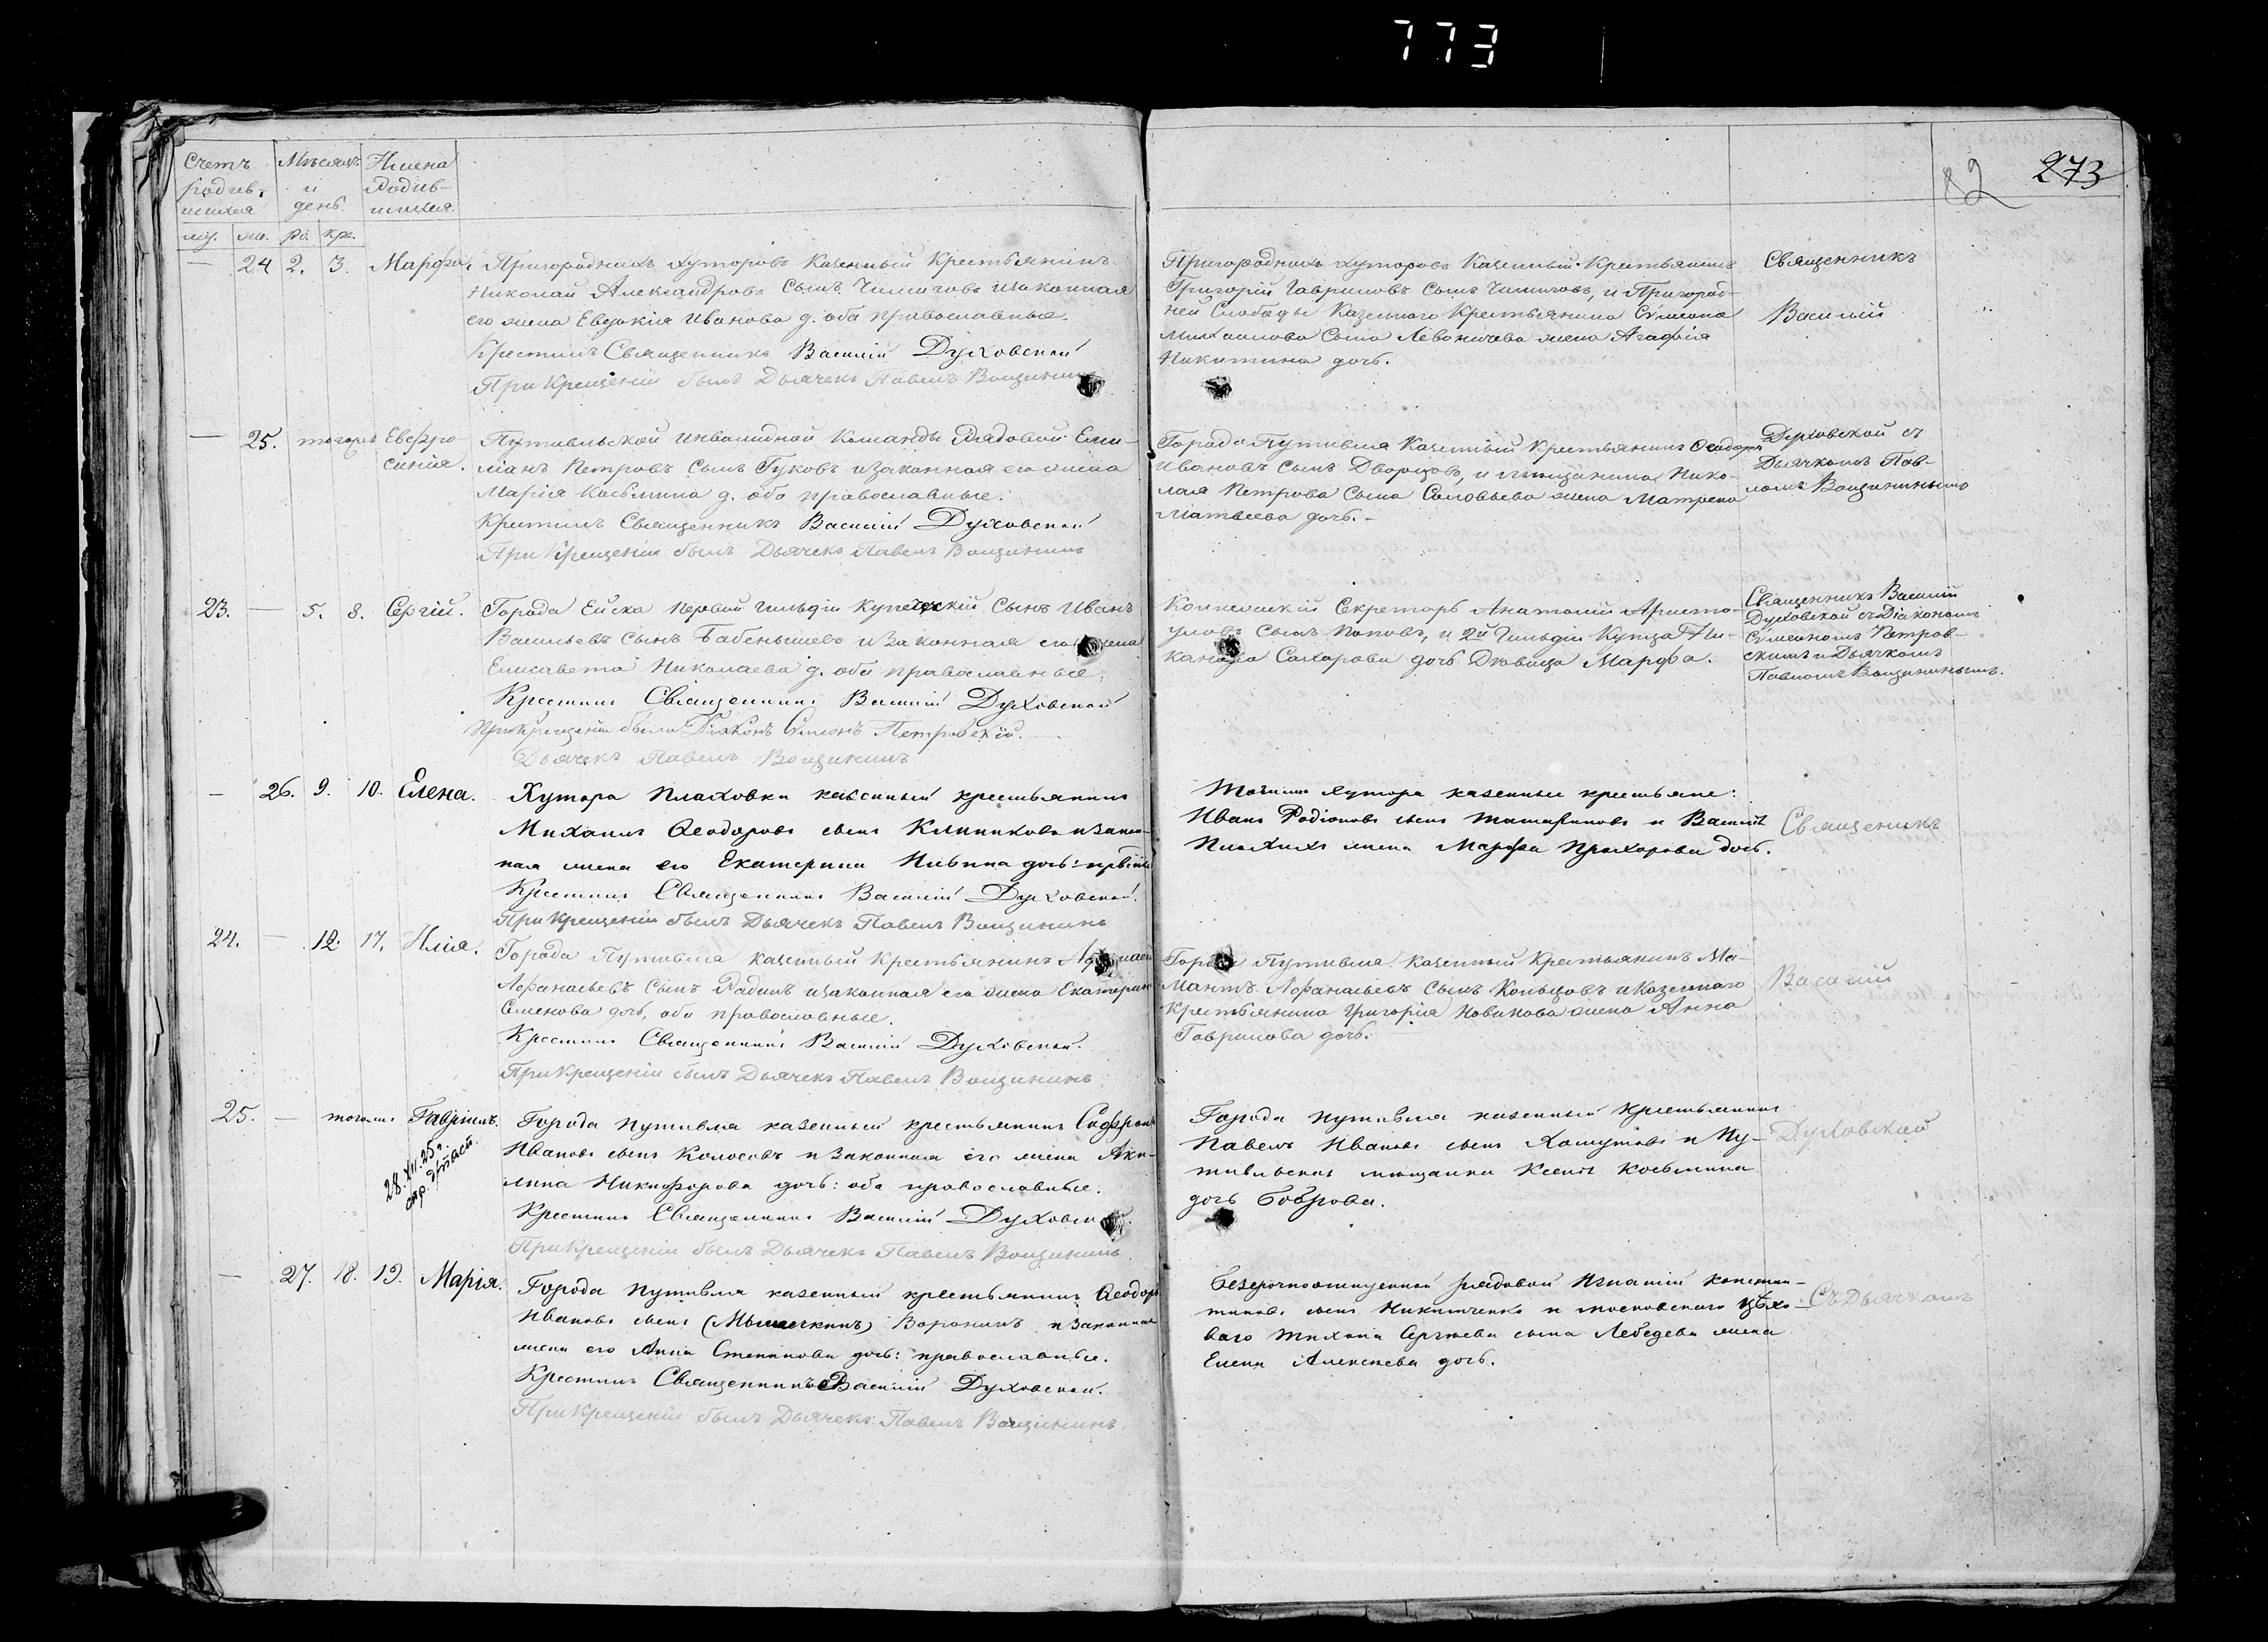 773
82 273
Счетъ родив-шихся
Мѣсяцъ и день
Имена Родив-шихся.
му. же. ро. кре.
— 24 2. 3. Марфа.
Пригородныхъ хуторовъ Казенный Крестьянинъ
Николай Александровъ Сынъ Чишаговъ и законная
его жена Евдокія Иванова д. оба православные.
Крестилъ Священникъ Василій Духовской
При Крещеніи былъ Дьячекъ Павелъ Вощининъ
Пригородныхъ хуторовъ Казенный Крестьянинъ
Григорій Гавриловъ Сынъ, и Пригород-
ней Слободы Казенного Крестьянина Сѵмеона
Михаилова Сына жена Агафія
Никитина дочь.
Священникъ
Василій
— 25. тогожъ Евфро-
синія.
Путивльской инвалидной Команды Рядовой Еми-
ліанъ Петровъ Сынъ Гуковъ и законная его жена
Марія Косьмина д. оба православные.
Крестилъ Священникъ Василій Духовской
При Крещеніи былъ Дьячекъ Павелъ Вощининъ
Города Путивля Казенный Крестьянинъ Ѳеодоръ
Ивановъ Сынъ Дворцовъ, и мещанина Нико-
лая Петрова Сына Соловьева жена Матрена
Матвеева дочь.-
Духовской съ
Дьячкомъ Пав-
ломъ Вощининымъ
23. — 5. 8. Сергій.
Города Ейска Первой Гильдіи Купеческій Сынъ Иванъ
Васильевъ Сынъ Бабенышевъ и Законная его жена
Елисавета Николаева д. оба православные.
Крестилъ Священникъ Василій Духовской
При Крещеніи были Діяконъ Сѵмеонъ Петровскій.
Дьячекъ Павелъ Вощининъ
Секретарь Анатолій Аристо-
уловъ Сынъ Поповъ, и 2й Гильдіи Купца Ни-
канора Сахарова дочь Дѣвица Марфа.
Священникъ Василій
Духовской съ Діякономъ
Сѵмеономъ Петров-
скимъ и Дьячкомъ
Павломъ Вощининымъ.
— 26. 9. 10. Елена.
Хутора Плаховки казенный крестьянинъ
Михаилъ Ѳеодоровъ сынъ Клишиковъ и закон-
ная жена его Екатерина дочь:
Крестилъ Священникъ Василій Духовской.
При Крещеніи былъ Дьячекъ Павелъ Вощининъ
Тогожъ хутора казенные крестьяне:
Иванъ Родіоновъ сынъ Татариновъ и Василія
Плахихъ жена Марфа Прохорова дочь.
Священникъ
24. — 12. 17. Илія.
Города Путивля казенный Крестьянинъ
Афанасьевъ Сынъ Радинъ и законная его жена Екатерина
Семенова дочь, оба православные.
Крестилъ Священникъ Василій Духовской.
При Крещеніи былъ Дьячекъ Павелъ Вощининъ
Города Путивля Казенный Крестьянинъ Ма-
мантъ Афанасьевъ Сынъ Копьцовъ и Казенного
Крестьянина Григорія Новикова жена Анна
Гаврилова дочь.
Василій
25. — тогожъ Гавріилъ.
28.XII.25г.
Города Путивля казенный крестьянинъ Софронъ
Ивановъ сынъ Колосовъ и Законная его жена Аки-
лина Никифорова дочь: оба православные.
Крестилъ Священникъ Василій Духовской.
При Крещеніи былъ Дьячекъ Павелъ Вощининъ.
Города Путивля казенный крестьянинъ
Павелъ Ивановъ сынъ Хошутовъ и Пу-
тивльская мещанка Ксенія Косьмина
дочь Боброва.
Духовской
— 27. 18. 19. Марія.
Города Путивля казенный крестьянинъ Ѳеодоръ
Ивановъ сынъ Воронинъ и Законная
жена его Анна Степанова дочь: православные.
Крестилъ Священникъ Василій Духовской.
При Крещеніи былъ Дьячекъ Павелъ Вощининъ.
Безсрочноотпускной рядовой Игнатій Констан-
тиновъ сынъ Никитченко и московского Цѣхо-
ваго Тихона Сергѣева сына Лебедева жена
Елена Алексѣева дочь.
Съ Дьячкомъ